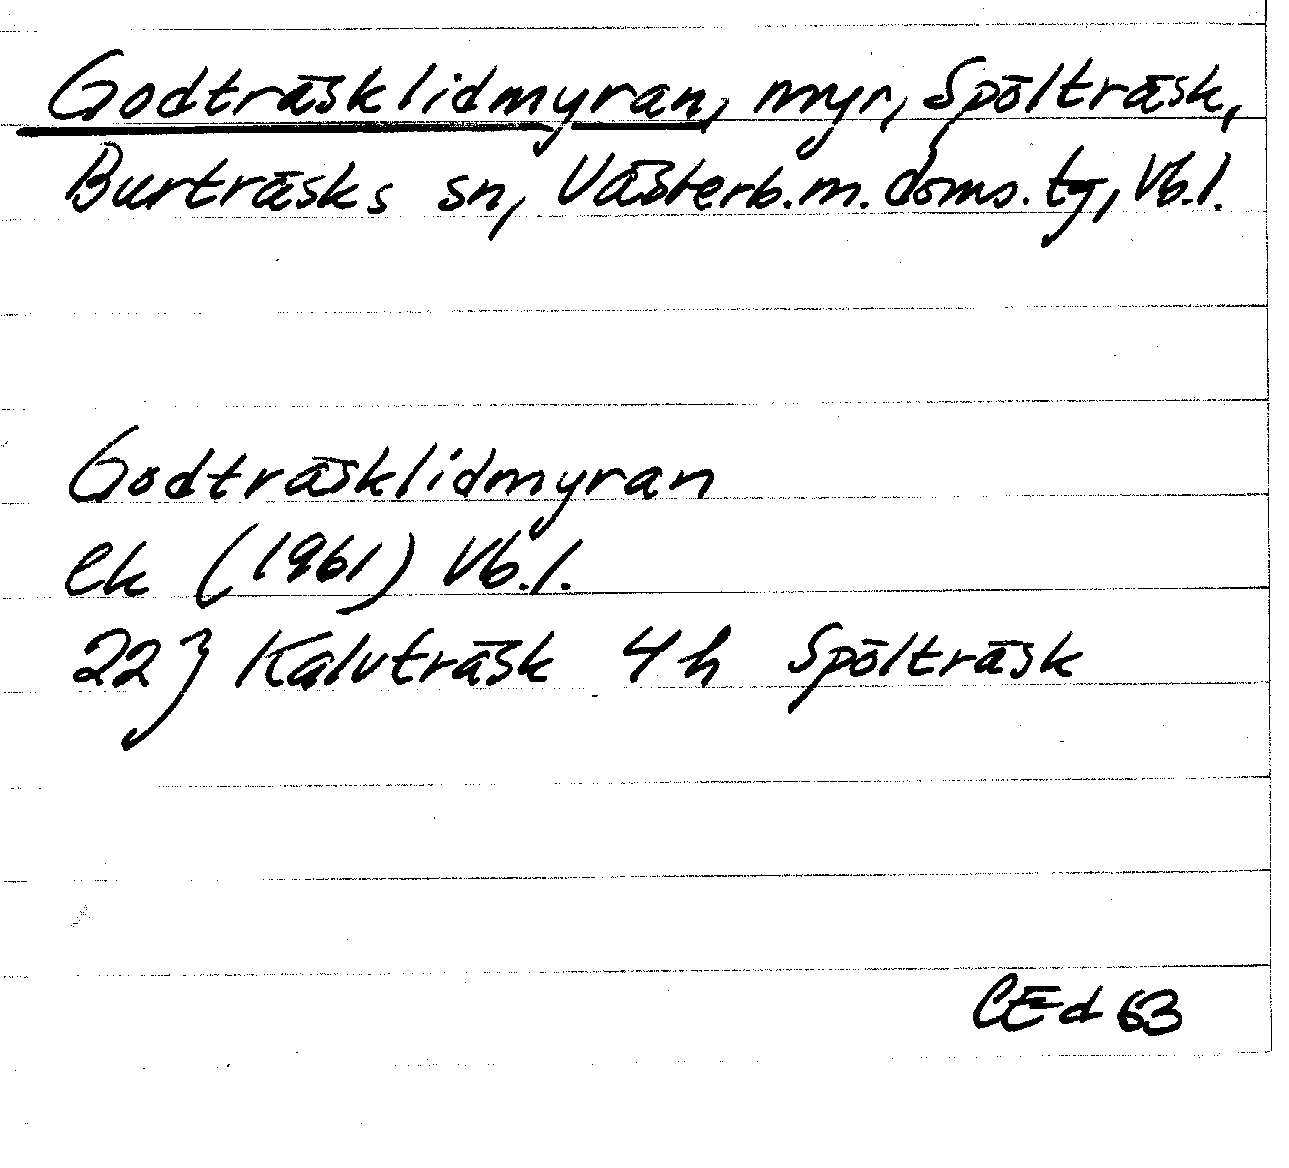 Godträsklidmyran, myr, Spölträsk,
Burträsks sn, Västerb.m.doms.tg, Vb.l.
Godträsklidmyran
ek (1961) Vb.l.
22J Kalvträsk 4h Spölträsk
CEd 63